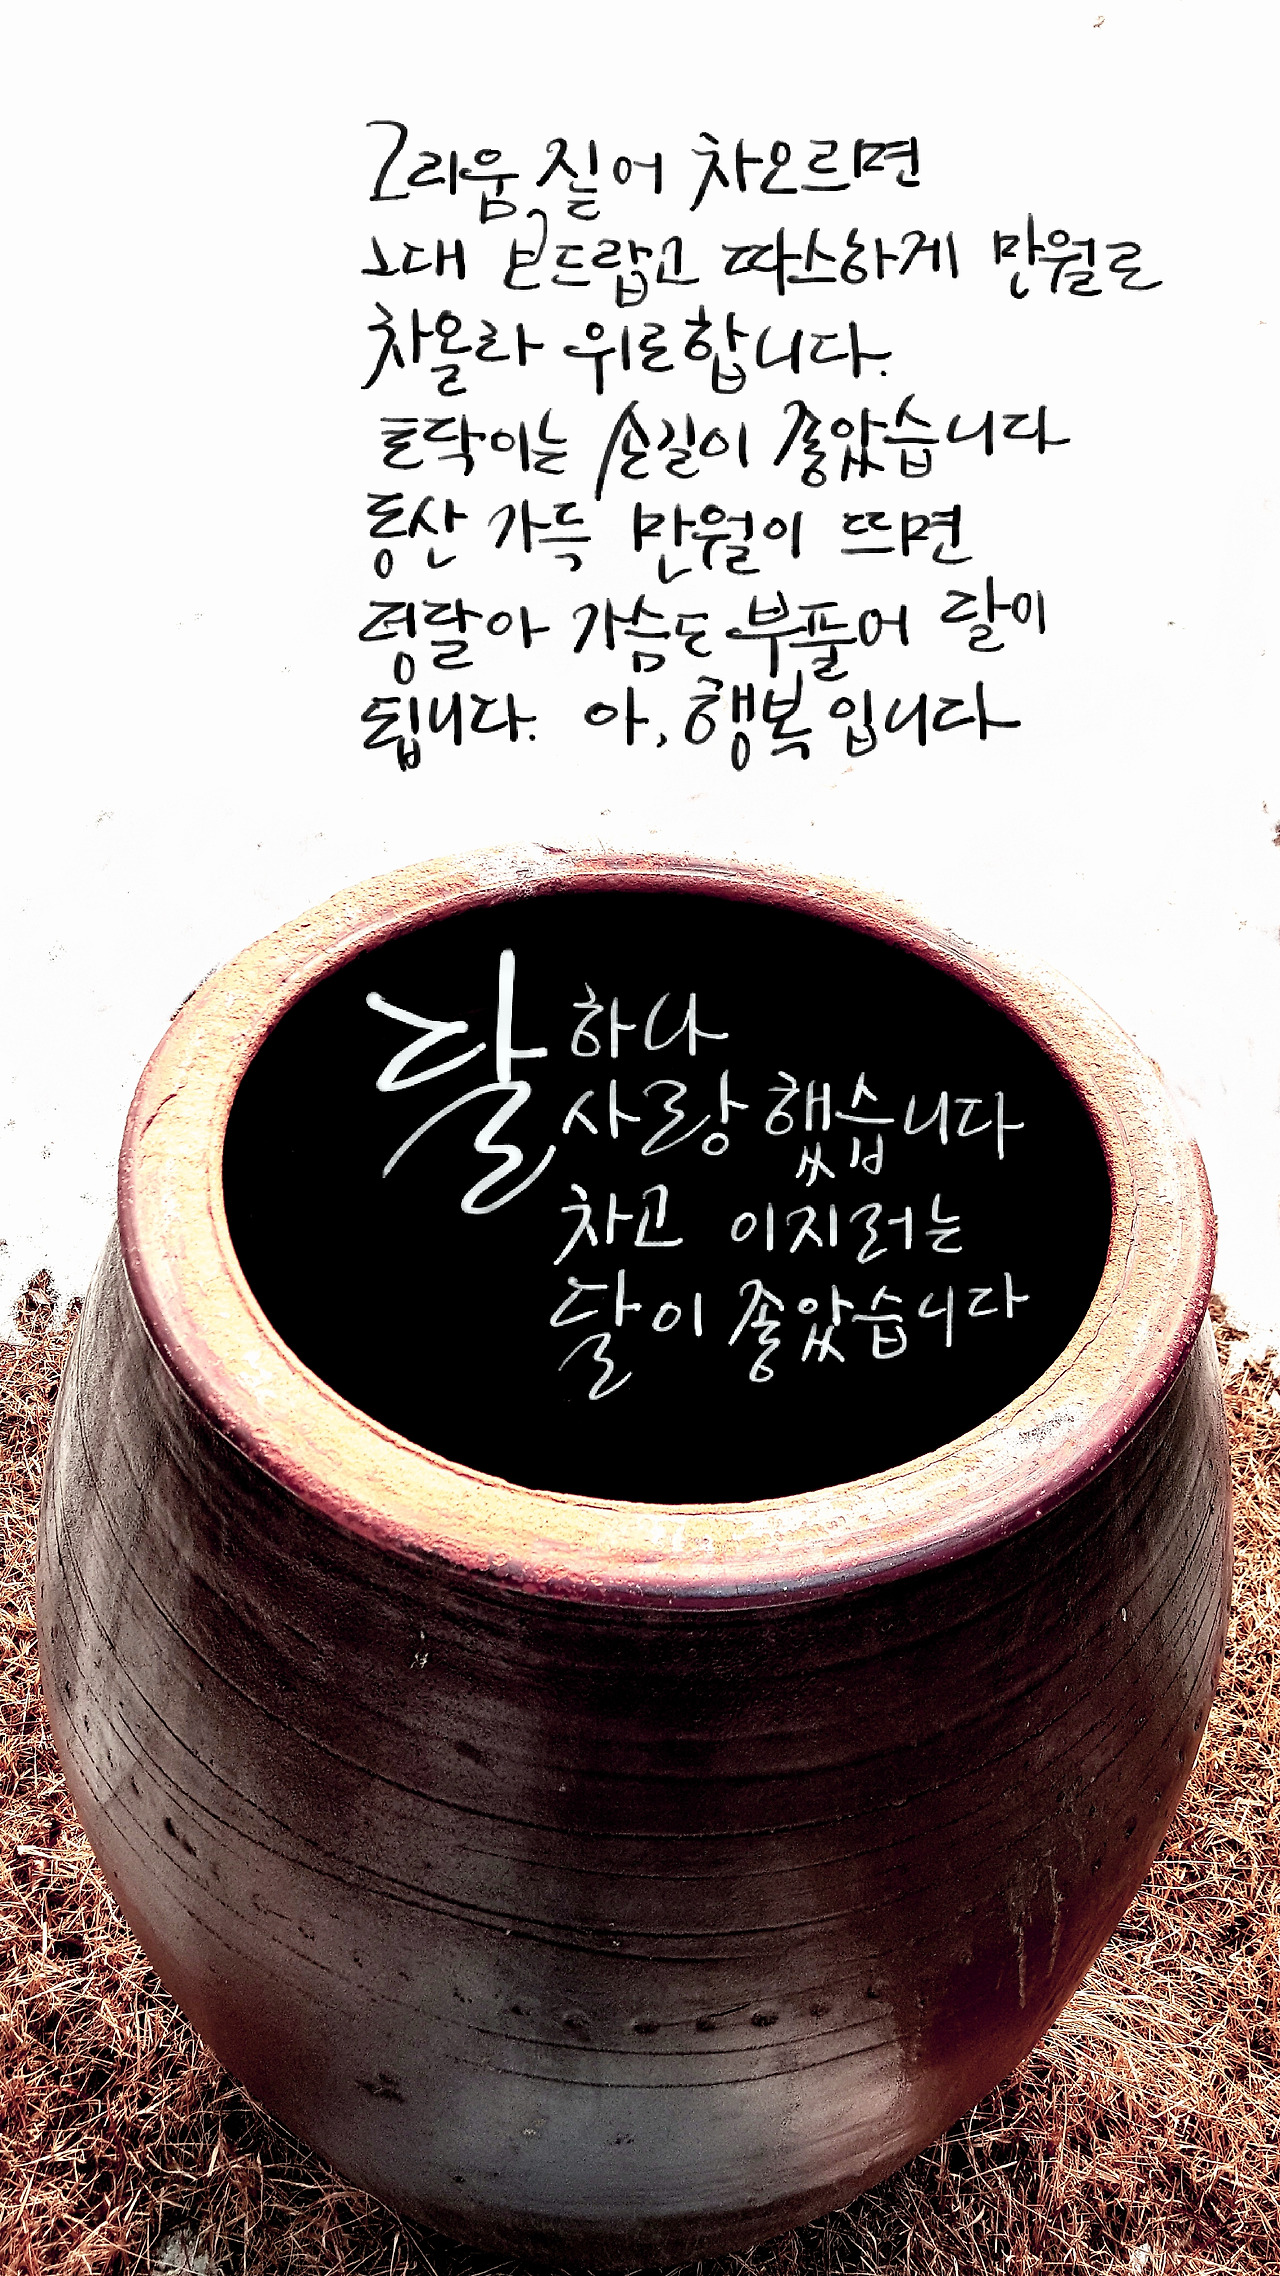 그리움 짙어 차오르면
그대 보드랍고 따스하게 만월로
차올라 위로합니다.
토닥이는 손길이 좋았습니다
동산 가득 만월이 뜨면
덩달아 가슴도 부풀어 달이
됩니다. 아, 행복입니다
달 하나
사랑했습니다
차고 이지러는
달이 좋았습니다